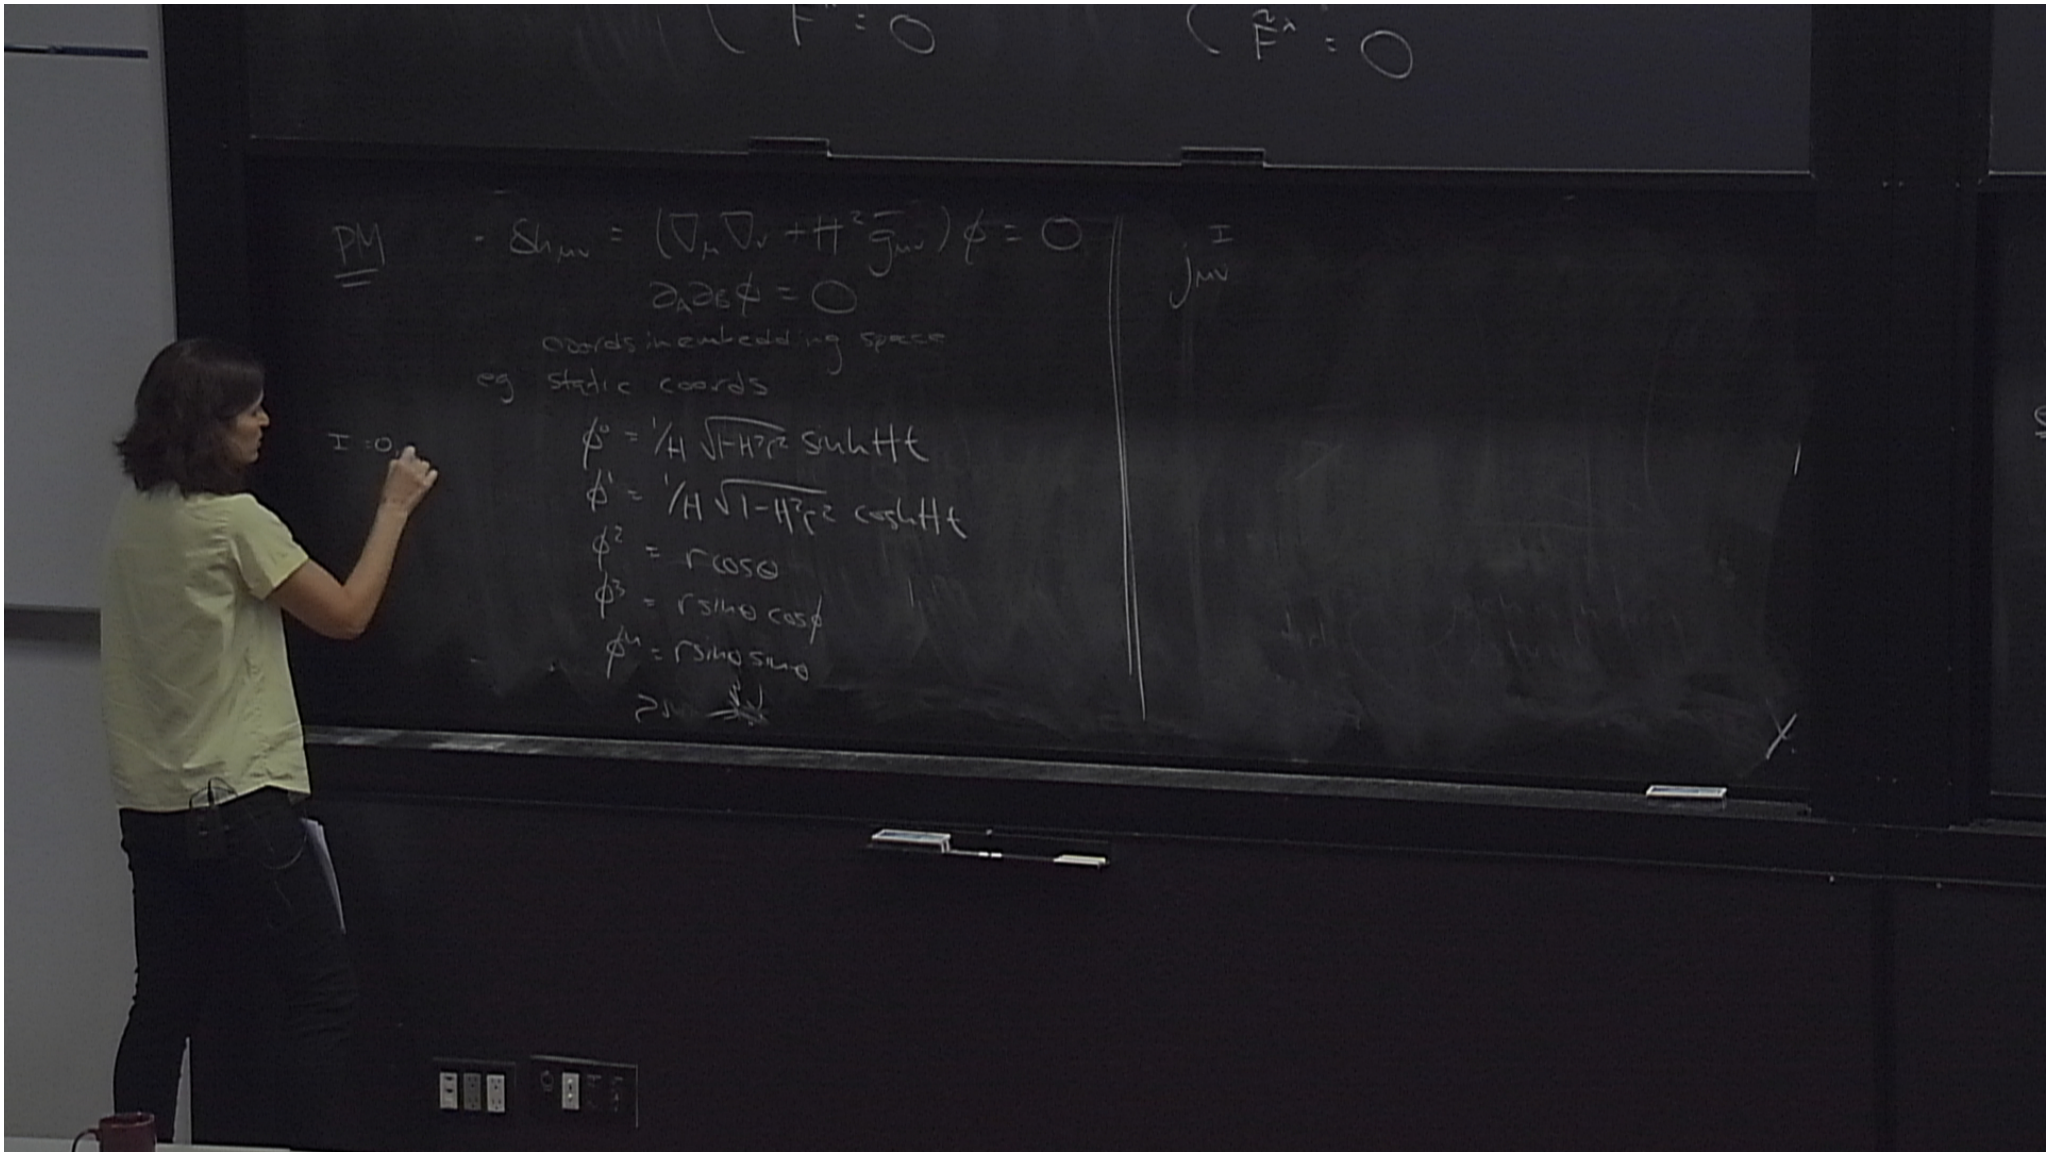 F : 0
F̃^λ : 0
PM
- δh_μν = (∇_μ ∇_ν + H² ḡ_μν) φ = 0
∂_A ∂_B φ = 0
coords in embedding space
eg static coords
I = 0,
φ⁰ = 1/H √1-H²r² sinh Ht
φ¹ = 1/H √1-H²r² cosh Ht
φ² = r cosθ
φ³ = r sinθ cosφ
φ⁴ = r sinθ sinθ
j^I_μν